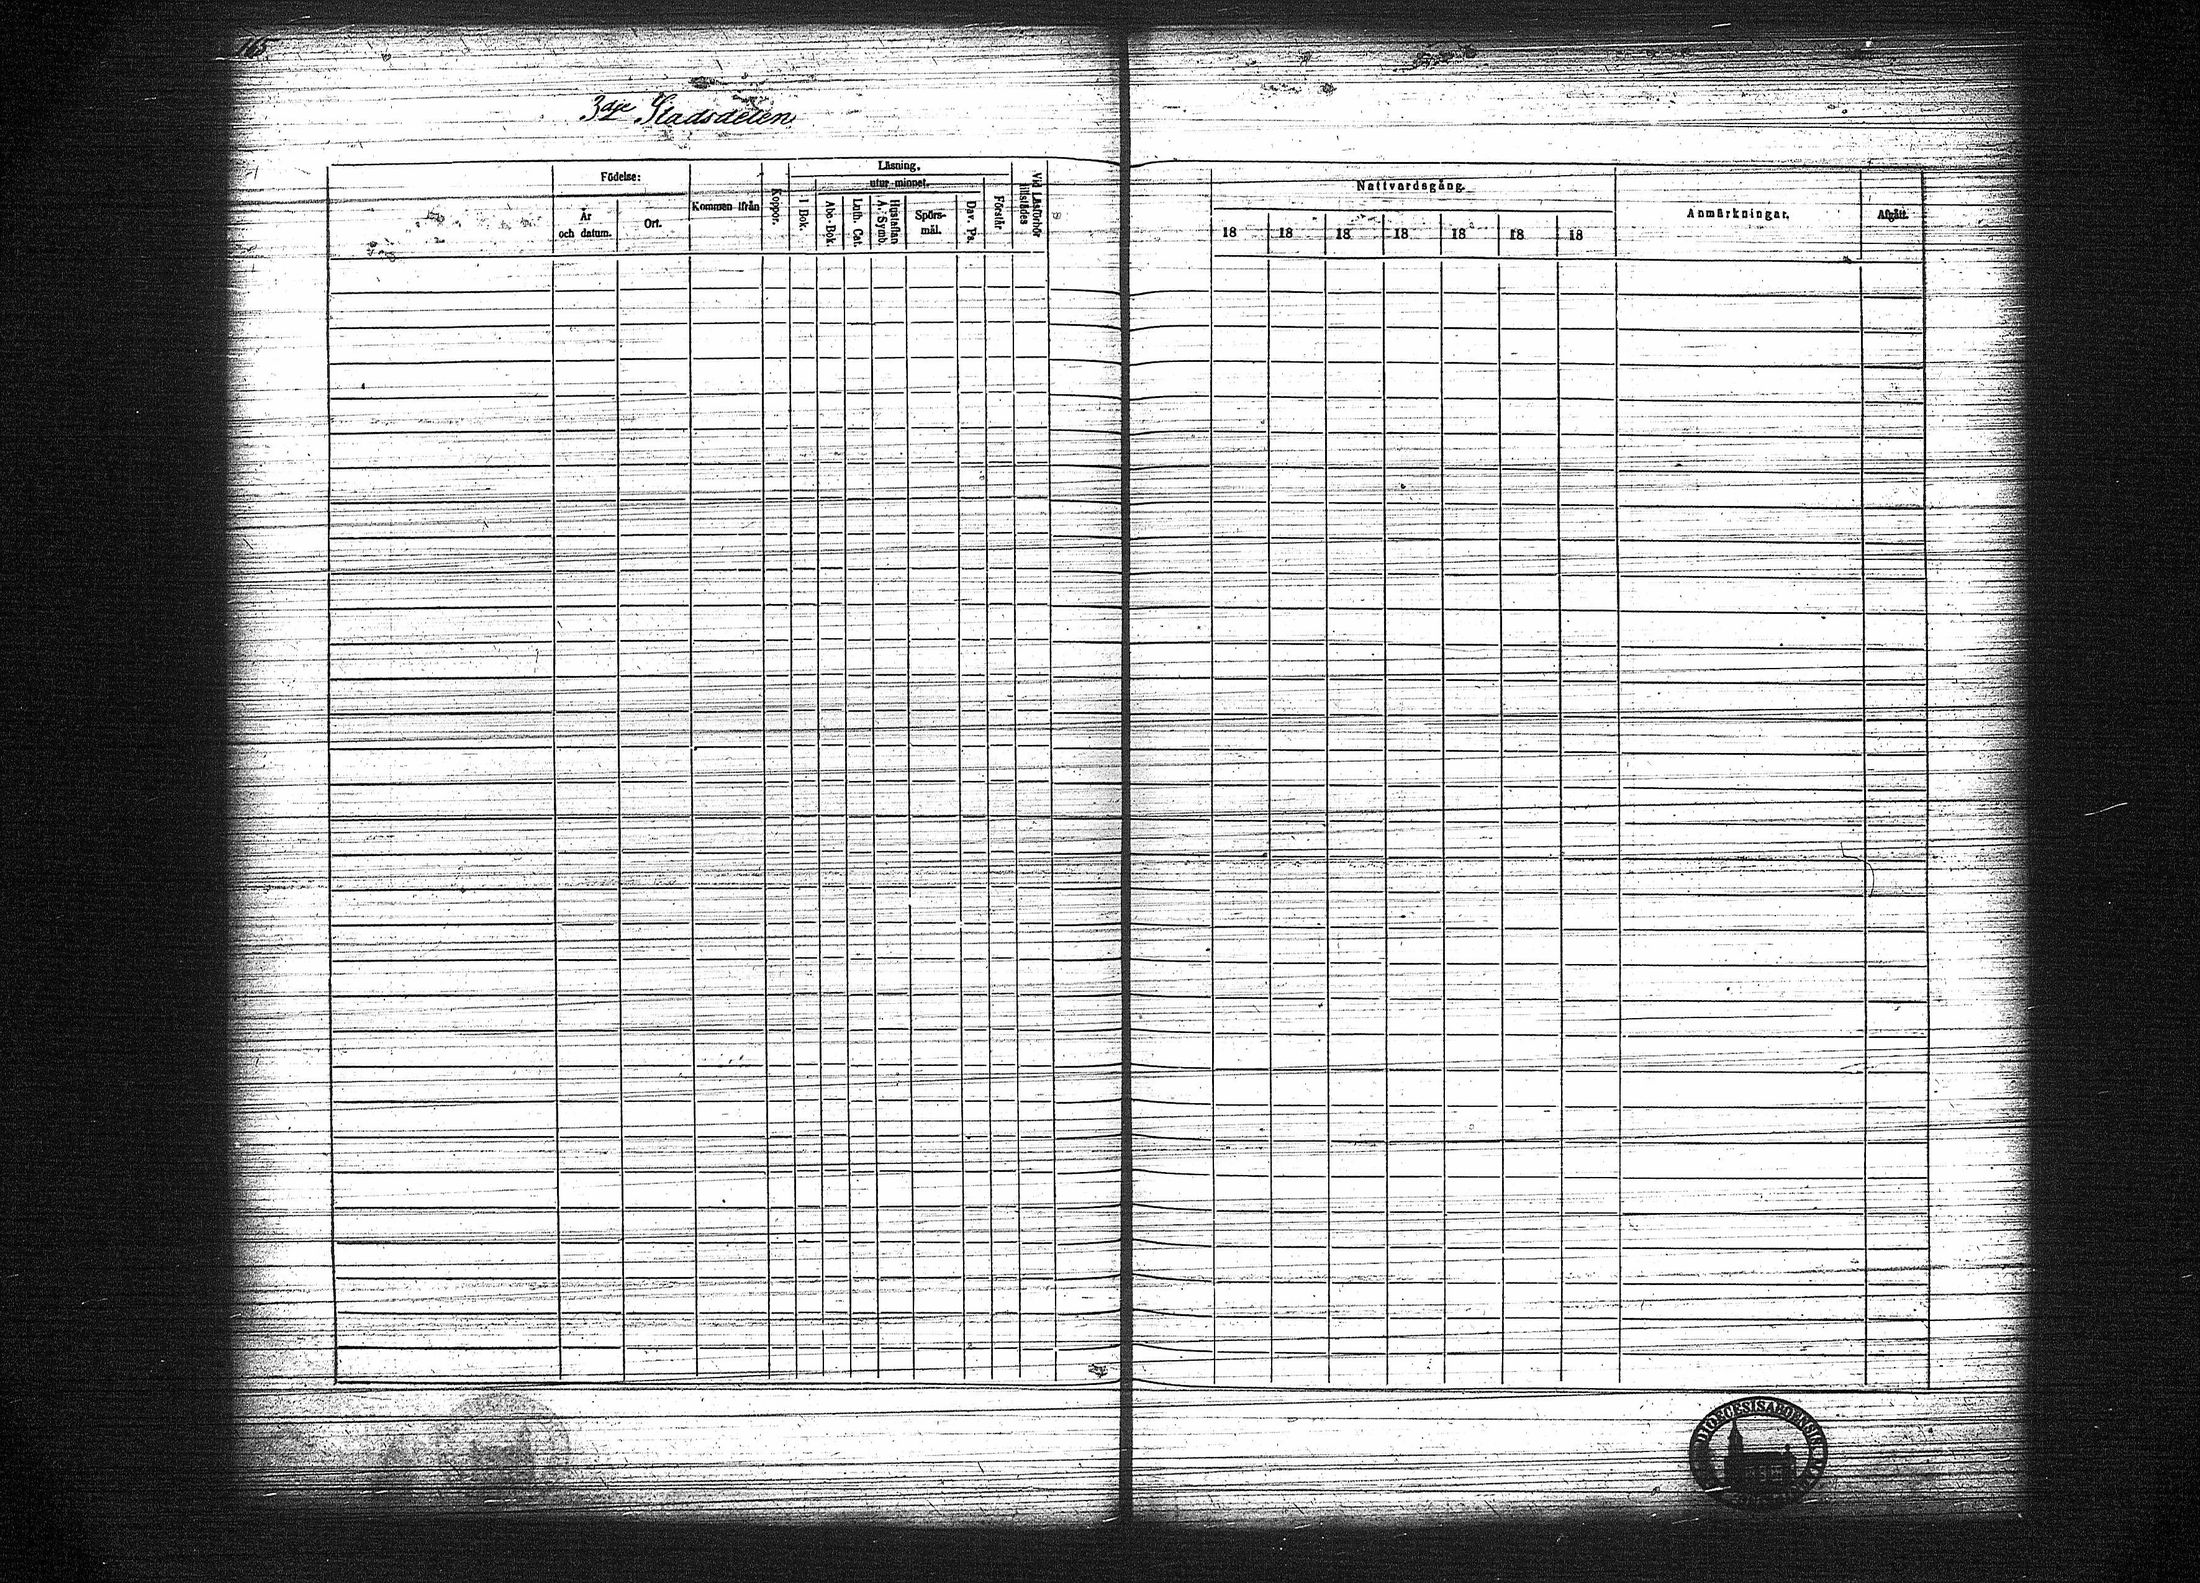 165
3dje Stadsdelen
Födelse:
År
och datum.
Ort.
Kommen ifrån
Koppor.
Läsning.
utur minnet.
I Bok.
Abc-Bok.
Luth. Cat.
Hustaflan
A. Symb.
Spörs-
mål.
Dav. Ps.
Förstår
Vid Läsförhör
tillstädes
Nattvardsgång.
18 18 18 18 18 18 18
Anmärkningar.
Afgått.